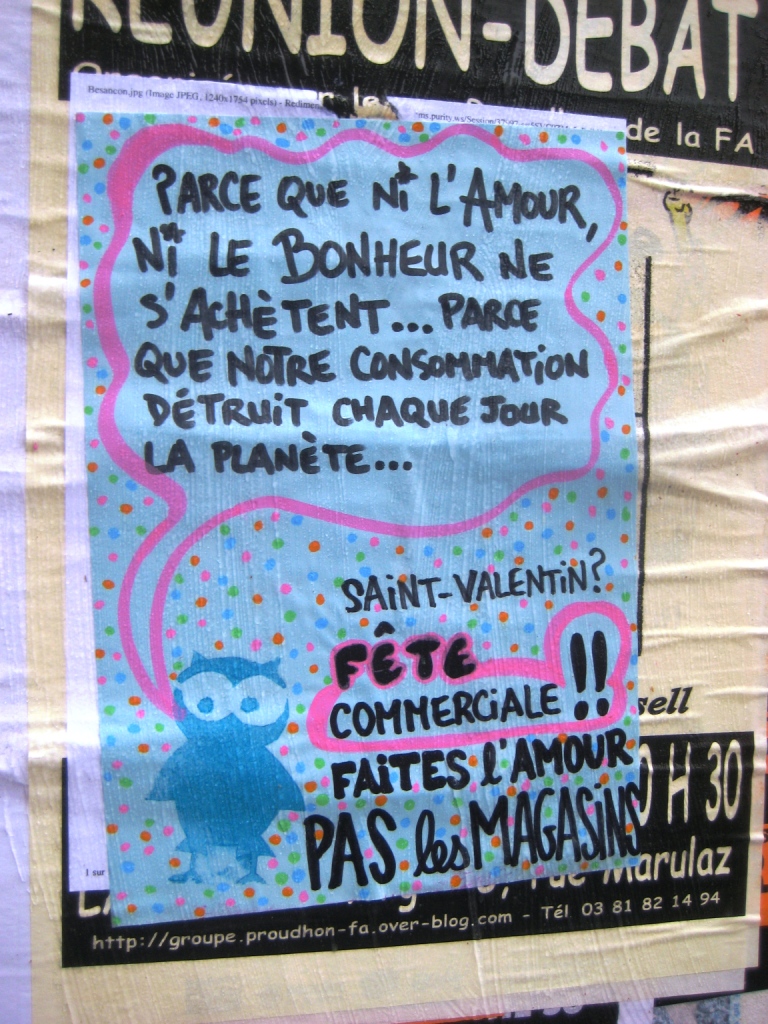 RÉUNION-DÉBAT
de la FA
Besancon.jpg (Image JPEG, 1240x1754 pixels) - Redimen
PARCE QUE Ni L'AMOUR,
Ni LE BONHEUR NE
S'ACHÈTENT... PARCE
QUE NOTRE CONSOMMATiON
DÉTRUiT CHAQUE JOUR
LA PLANÈTE...
SAiNT-VALENTiN?
FÊTE
COMMERCiALE !!
FAiTES l'AMOUR
PAS les MAGASiNS
sell
H 30
1 sur
rue Marulaz
http://groupe.proudhon-fa.over-blog.com - Tél 03 81 82 14 94